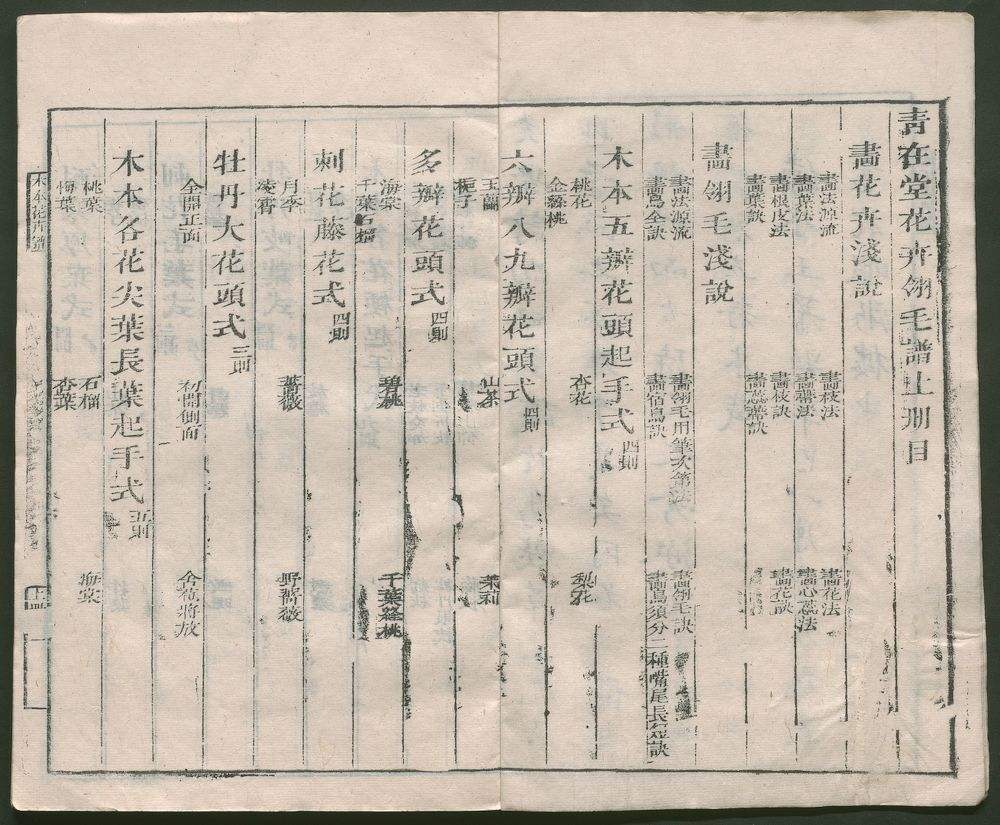 青在堂花卉翎毛譜上册目
畫花卉淺說
畫法源流 畫枝法 畫花法
畫葉法 畫蒂法 畫心蕊法
畫根皮法 畫枝訣 畫花訣
畫葉訣 畫蕊蒂訣
畫翎毛淺說
畫法源流 畫翎毛用筆次第法 畫翎毛訣
畫鳥全訣 畫宿鳥訣 畫鳥須分二種嘴尾長短訣
木本五瓣花頭起手式 四則
桃花 杏花 梨花
金絲桃
六瓣八九瓣花頭式 四則
玉蘭 山茶 茉莉
梔子
多瓣花頭式 四則
海棠 碧桃 千葉絳桃
千葉石榴
刺花藤花式 四則
月季 薔薇 野薔薇
凌霄
牡丹大花頭式 三則
全開正面 初開側面 含苞將放
木本各花尖葉長葉起手式 五則
桃葉 石榴 海棠
梅葉 杏葉
木本花卉譜